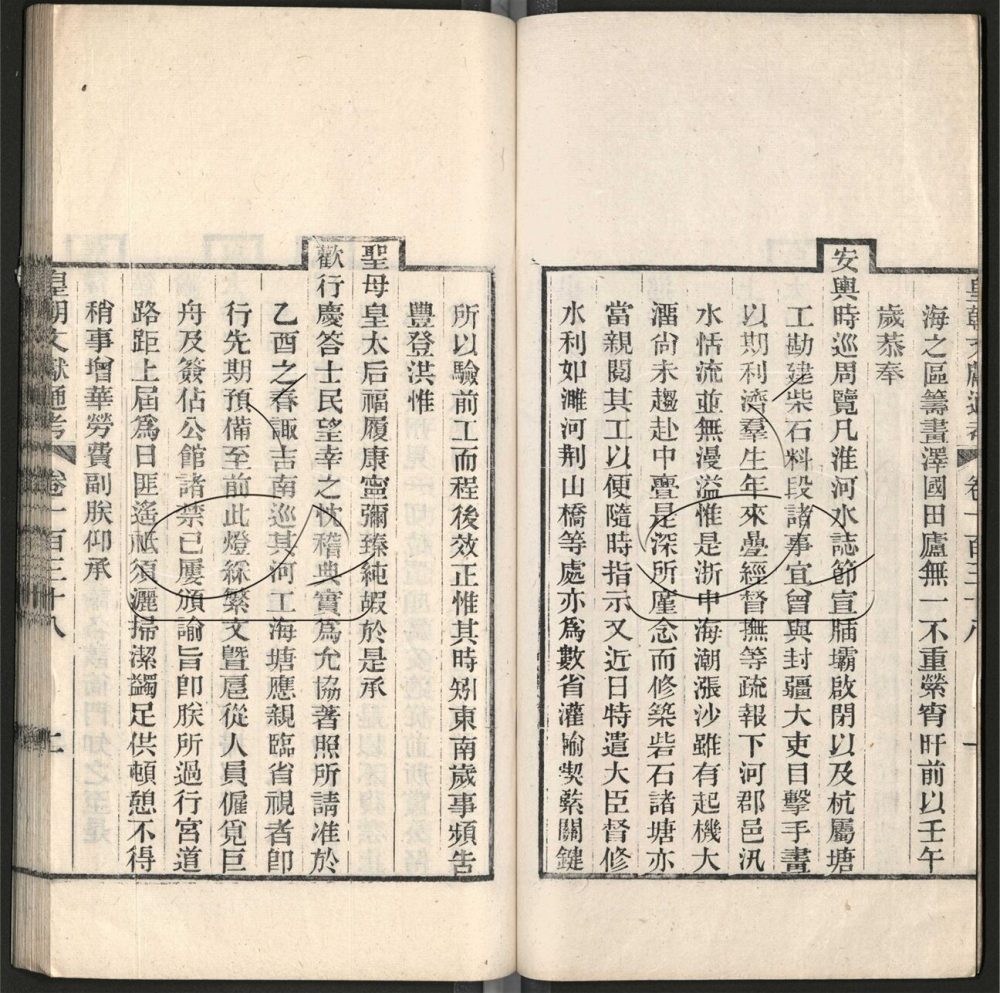 海之區籌畫澤國田廬無一不重縈宵旰前以壬午
歲恭奉
安輿時巡周覽凡淮河水誌節宣牐壩啟閉以及杭屬塘
工勘建柴石料段諸事宜曾與封疆大吏目擊手畫
以期利濟羣生年來疊經督撫等疏報下河郡邑汛
水恬流並無漫溢惟是浙中海潮漲沙雖有起機大
溜尙未趨赴中亹是深所厪念而修築砦石諸塘亦
當親閱其工以便隨時指示又近日特遣大臣督修
水利如濉河荆山橋等處亦爲數省灌輸喫緊關鍵
所以驗前工而程後效正惟其時矧東南歲事頻告
豐登洪惟
聖母皇太后福履康寧彌臻純嘏於是承
歡行慶答士民望幸之忱稽典實爲允協著照所請准於
乙酉之春諏吉南巡其河工海塘應親臨省視者卽
行先期預備至前此燈綵繁文曁扈從人員僱覓巨
舟及簽佔公館諸禁已屢頒諭旨卽朕所過行宮道
路距上屆爲日匪遙祗須灑掃潔蠲足供頓憩不得
稍事增華勞費副朕仰承
皇朝文獻通考 卷一百三十八 二